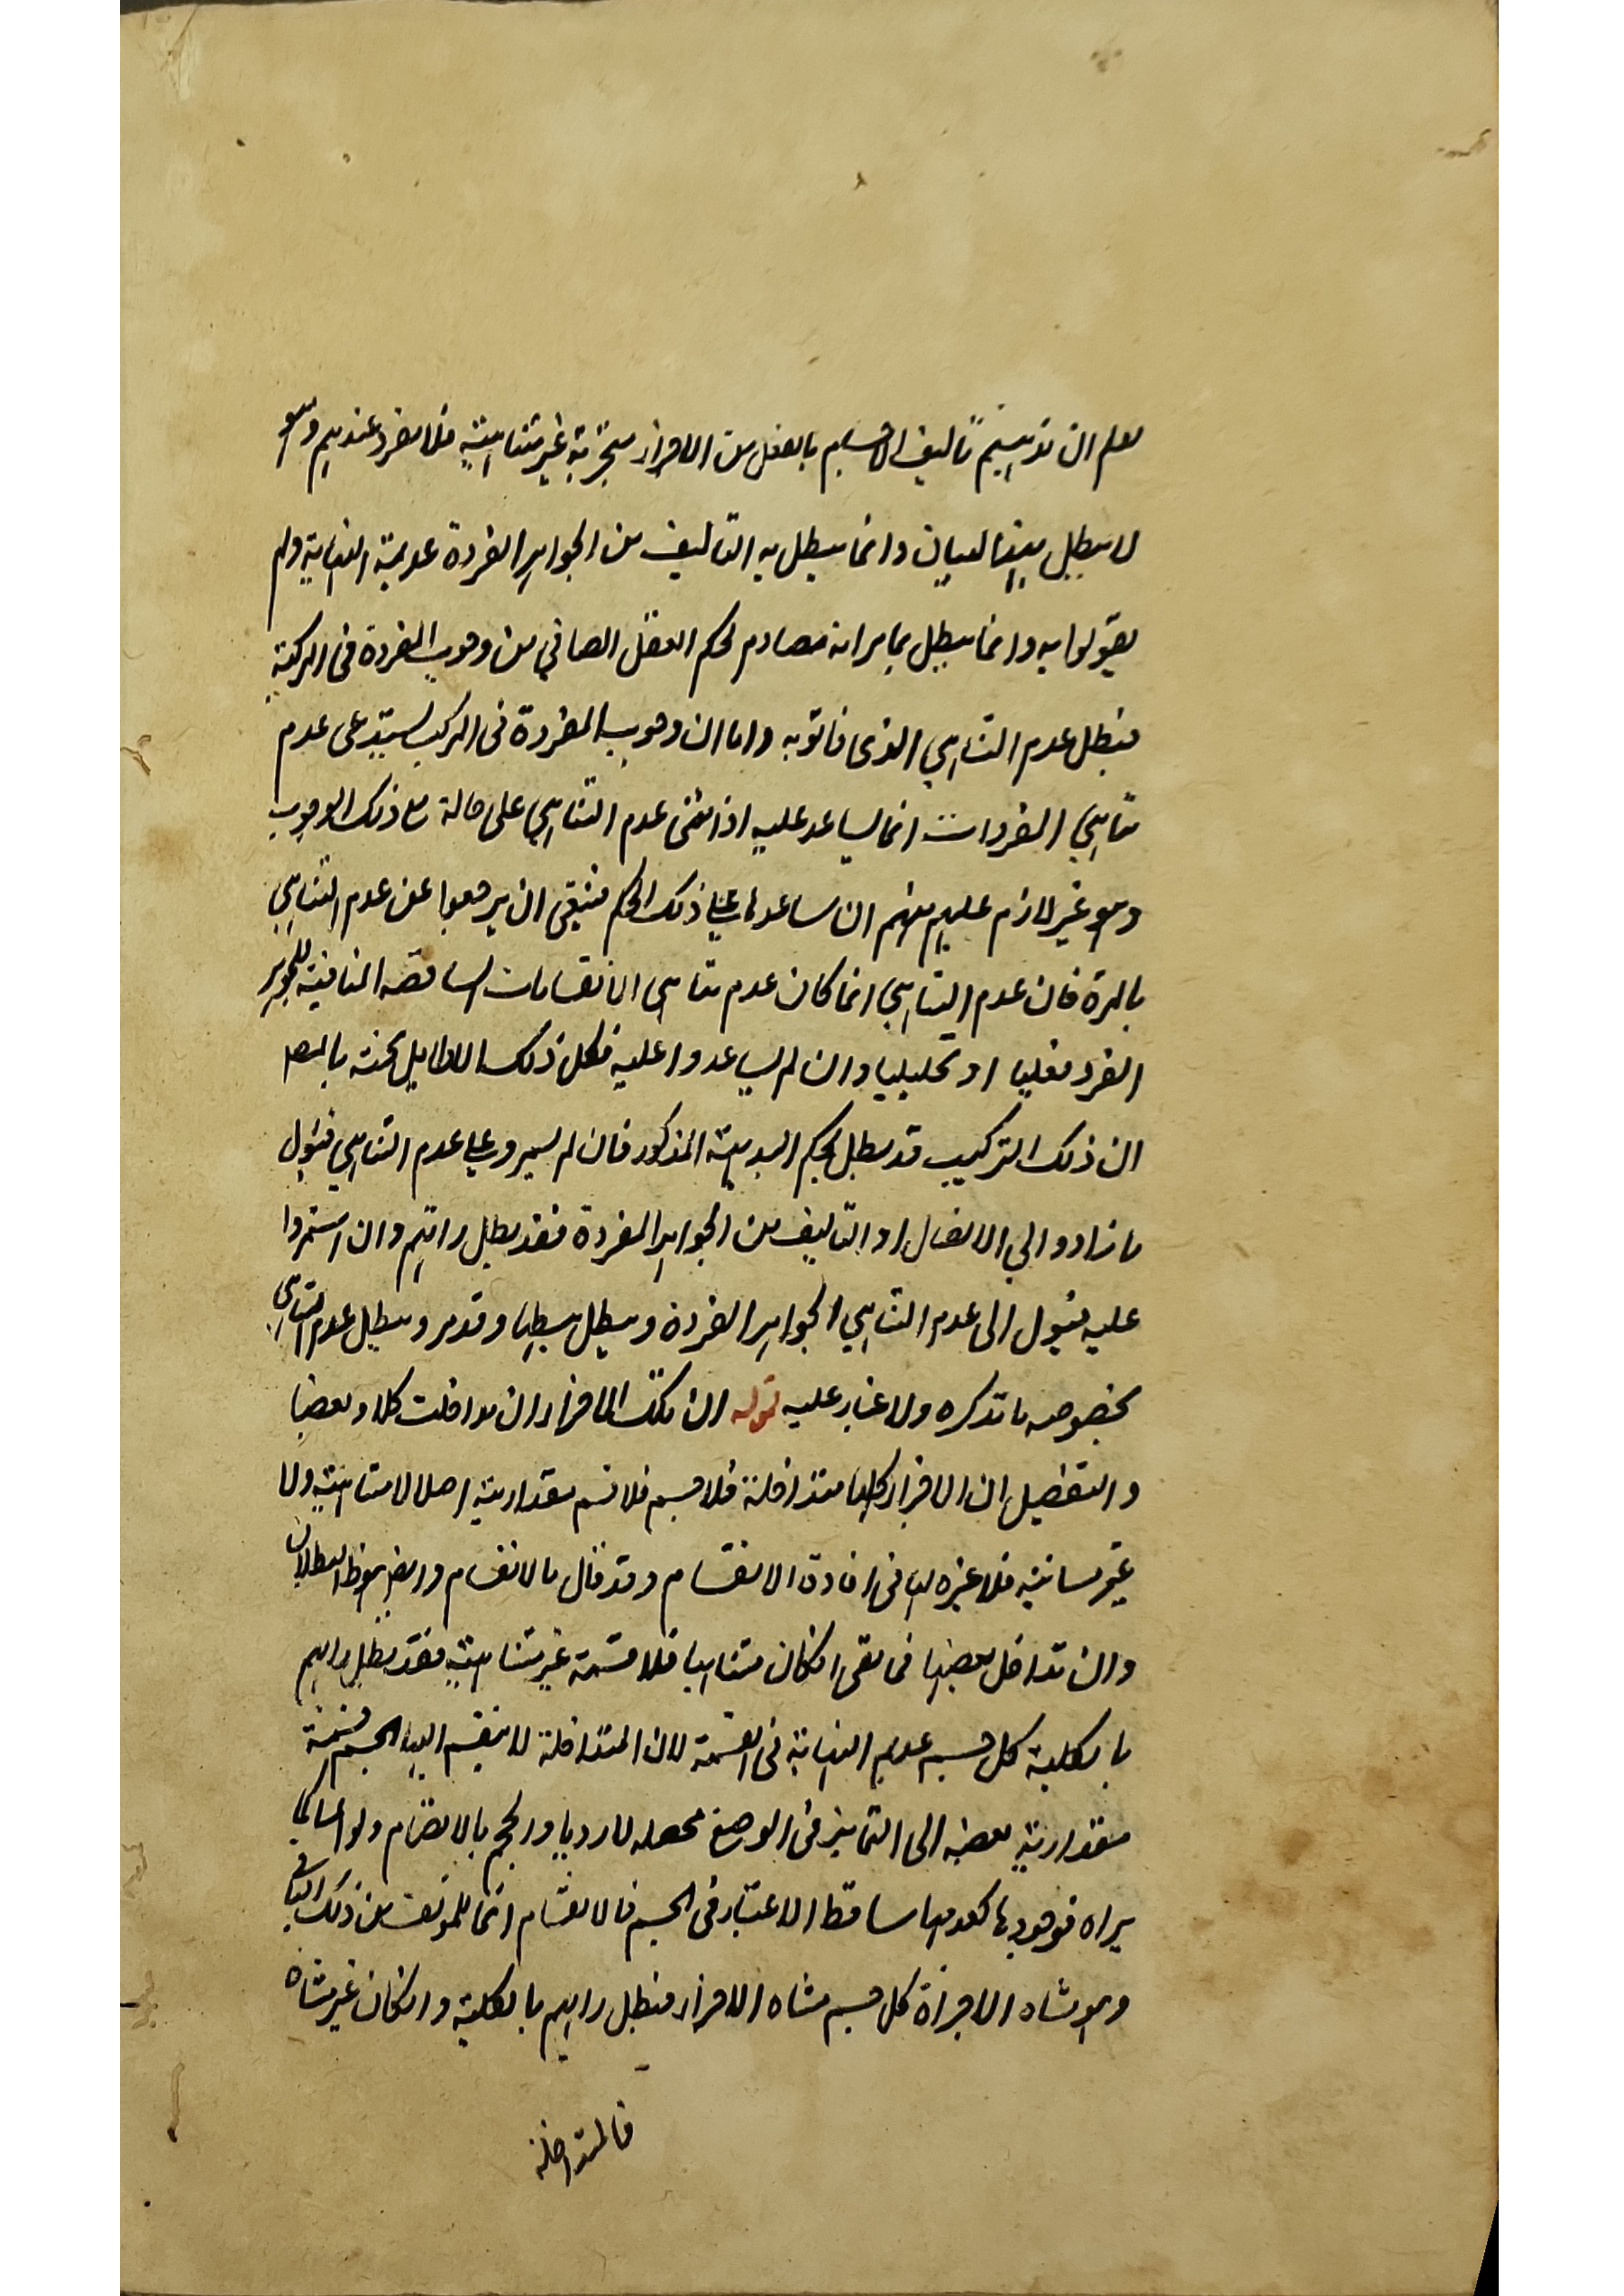 يعلم ان مذهبهم تاليف الاجسام بالفعل من الاجزاء متجزية غير متناهية فلا مفرد عندهم وهو
لا يبطل بهذا البيان وانما يبطل به التاليف من الجواهر الفردة عديمة النهاية ولم
يقولوا به وانما يبطل بما مر انه مصادم لحكم العقل الصافي من وجوب المفردة في المركبة
فبطل عدم التناهي الذي فاتوا به واما ان وجوب المفردة في المركب يستدعي عدم
تناهي المفردات انما يساعد عليه اذا بقي عدم التناهي على حاله مع ذلك الوجوب
وهو غير لازم عليهم فهم ان ساعدونا على ذلك الحكم فينبغي ان يرجعوا عن عدم التناهي
بالمرة فان عدم التناهي انما كان عدم تناهي الانقسامات الساقطة المنافية للجوهر
الفرد فعليا او تحليليا وان لم يساعدوا عليه فكل ذلك لا طايل تحته بالجملة
ان ذلك التركيب قد بطل بحكم البديهة المذكور فان لم يصروا على عدم التناهي فيؤل
ما زادوا الى الاتصال او التاليف من الجواهر المفردة فقد بطل رايهم وان استمروا
عليه فيؤل الى عدم التناهي الجواهر الفردة ويبطل ببطلها وقد مر ويبطل عدم التناهي
بخصوصه ما تذكره ولا غبار عليه قوله ان تلك الاجزاء ان تداخلت كلا او بعضا
والتفصيل ان الاجزاء كلها متداخلة فلا جسم فلا قسم مقدارية اصلا لا متناهية ولا
غير متناهية فلا عبرة لها في افادة الانقسام وقد قال بالانقسام ورايهم بهذا البطلان
وان تداخل بعضها فما بقي ان كان متناهيا فلا قسمة غير متناهية فقد بطل رايهم
بالكلية كل جسم عديم النهاية في القسمة لان المتداخلة لا ينقسم اليها الجسم قسمة
مقدارية بعضه الى التمايز في الوضع محصله لازدياد الحجم بالانضمام ولو اعيانا كما
يراه فوجودها كعدمها ساقط الاعتبار في الجسم فالانقسام انما للمؤلف من ذلك الباقي
وهو متناه الاجزاء كل جسم متناه الاجزاء فبطل رايهم بالكلية وان كان غير متناه
فالمتداخلة